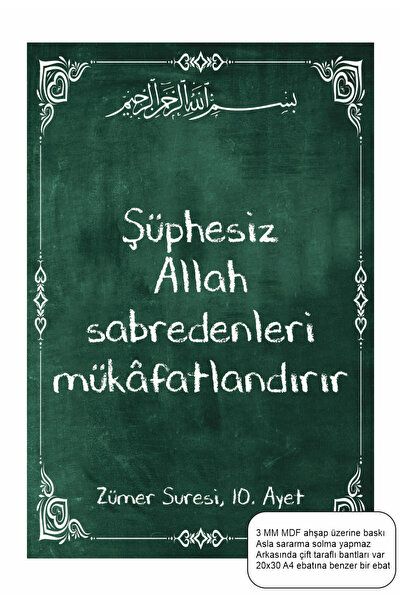 بسم الله الرحمن الرحيم
Şüphesiz
Allah
sabredenleri
mükâfatlandırır
Zümer Suresi, 10. Ayet
3 MM MDF ahşap üzerine baskı
Asla sararma solma yapmaz
Arkasında çift taraflı bantları var
20x30 A4 ebatına benzer bir ebat